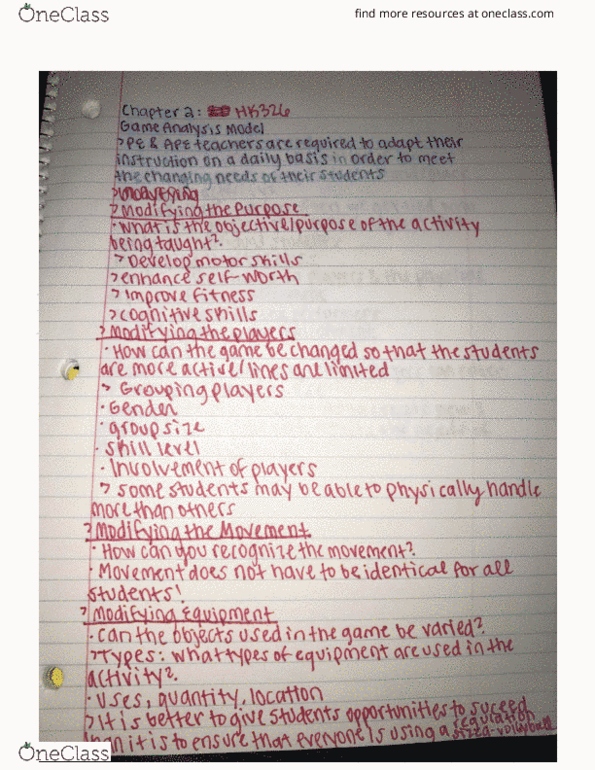 OneClass
find more resources at oneclass.com
Chapter 2: HK326
Game Analysis Model
>PE & APE teachers are required to adapt their
instruction on a daily basis in order to meet
the changing needs of their students
>Modifying the Purpose
·What is the objective/purpose of the activity
being taught?
>Develop motor skills
>enhance self-worth
>Improve fitness
>cognitive skills
>Modifying the players
·How can the game be changed so that the students
are more active/lines are limited
> Grouping players
·Gender
·group size
·skill level
·Involvement of players
> some students may be able to physically handle
more than others
>Modifying the Movement
·How can you recognize the movement?
·Movement does not have to be identical for all
students!
>Modifying Equipment
·can the objects used in the game be varied?
>Types: what types of equipment are used in the
activity?
·Uses, quantity, location
>It is better to give students opportunities to suceed
than it is to ensure that everyone is using a regulation
sized-volleyball
OneClass